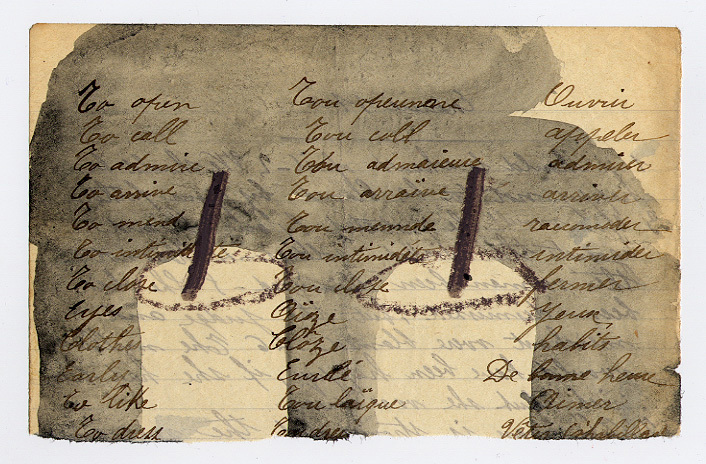 To open Tou opeunne Ouvrir
To call Tou coll appeler
To admire Tou admaieure admirer
To arrive Tou arraïve arriver
To mend Tou mennde
To intimidate Tou intimidéte intimider
To close Tou close fermer
Eyes Aïze Yeux
Clothes Clôze habits
Earley Eurlé De bonne heure
To like Tou laïque Aimer
To dress Tou dress Vêtir